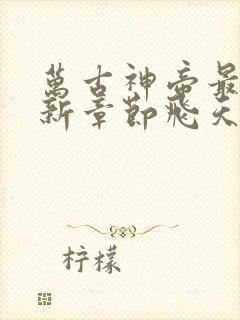 萬古神帝最
新章節飛天
柠檬